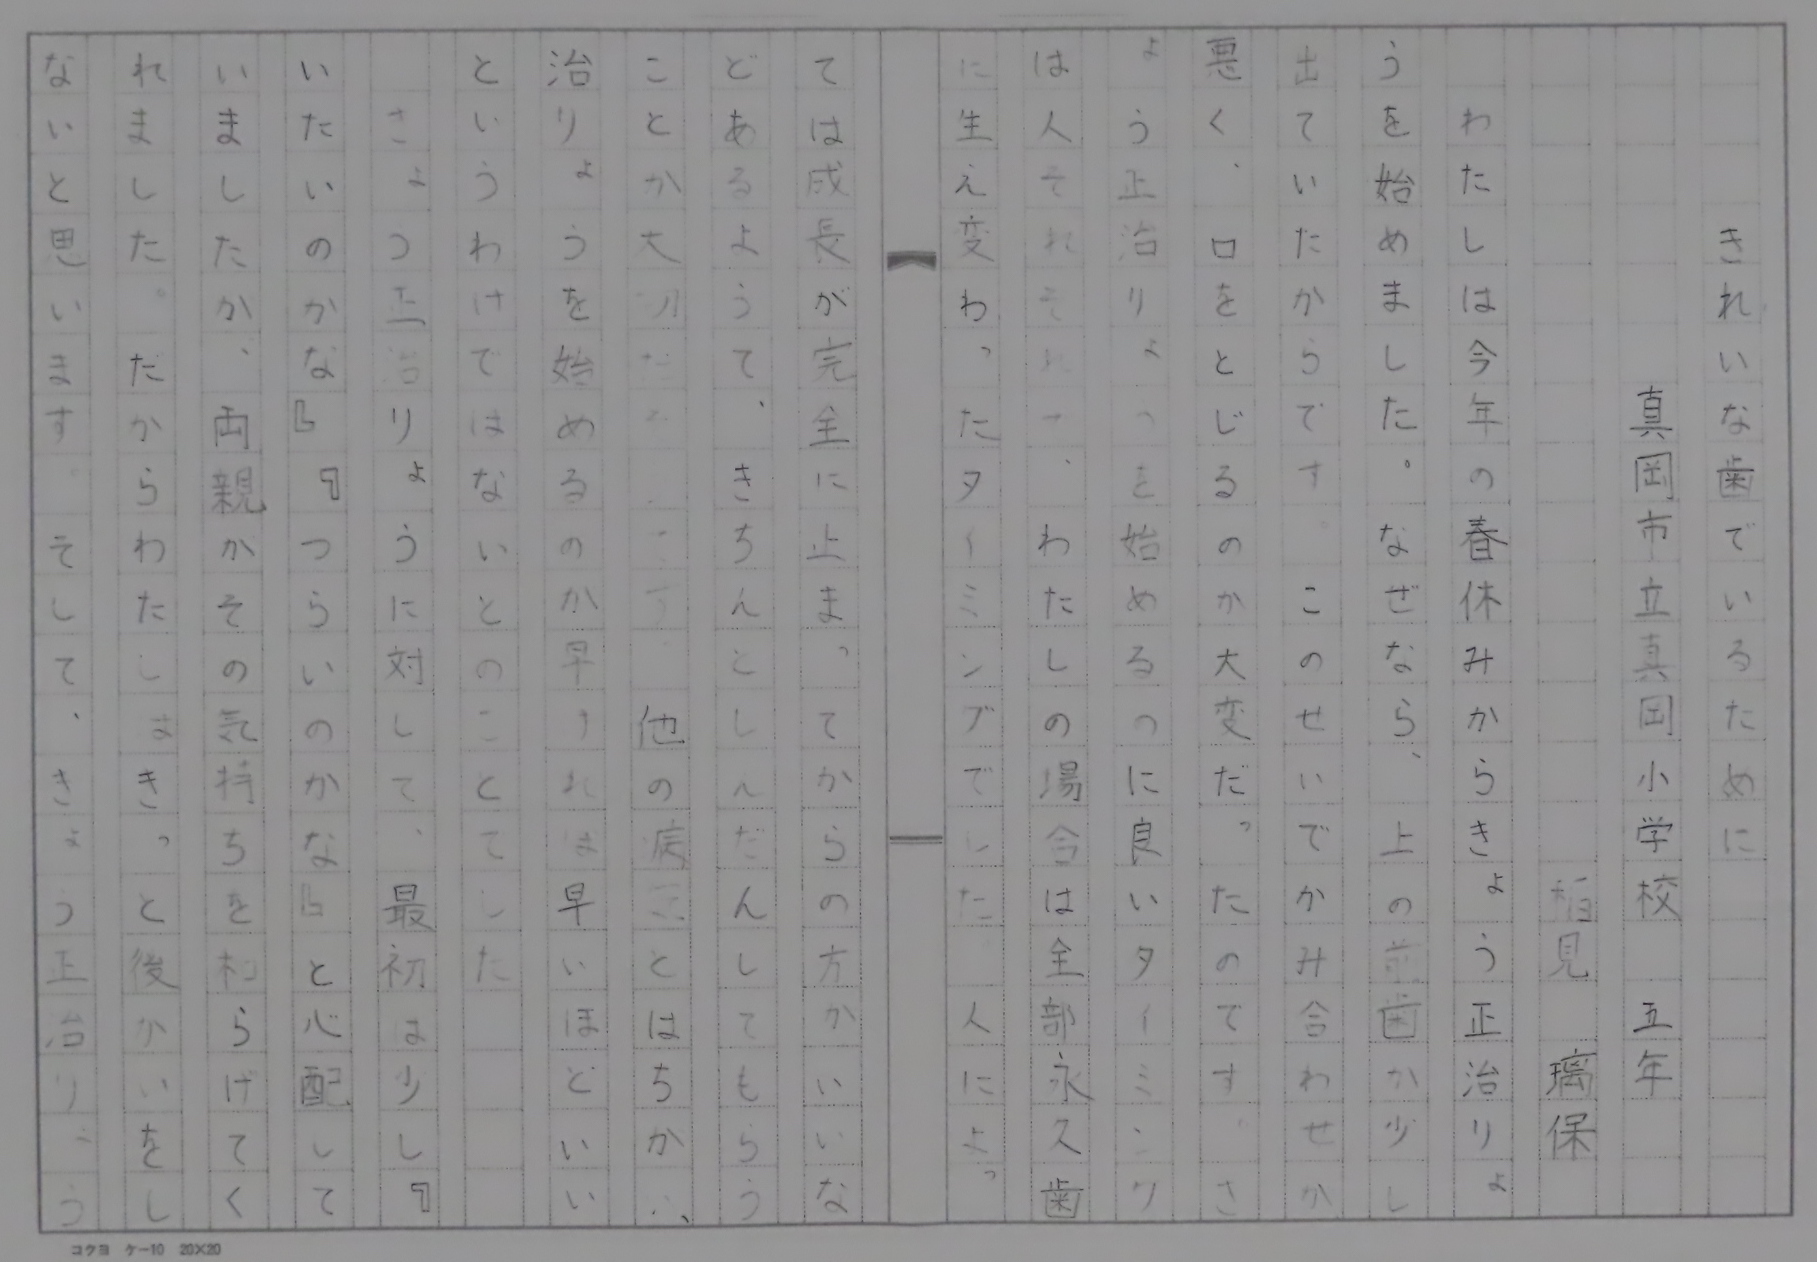 きれいな歯でいるために
真岡市立真岡小学校 五年
稲見 璃保
わたしは今年の春休みからきょう正治りょ
うを始めました。なぜなら、上の前歯か少し
出ていたからです。このせいでかみ合わせか
悪く、口をとじるのか大変だったのです。き
ょう正治りょうを始めるのに良いタイミング
は人それぞれで、わたしの場合は全部永久歯
に生え変わったタイミングでした。人によっ
ては成長が完全に止まってからの方かいいな
どあるようて、きちんとしんだんしてもらう
ことか大切だ 他の病 とはちかい、
治りょうを始めるのか早ければ早いほどいい
というわけではないとのことてした
きょう正治りょうに対して、最初は少し『
いたいのかな』『つらいのかな』と心配して
いましたか、両親かその気持ちを和らげてく
れました。だからわたしはきっと後かいをし
ないと思います。そして、きょう正治りょう
コクヨ ケー10 20×20